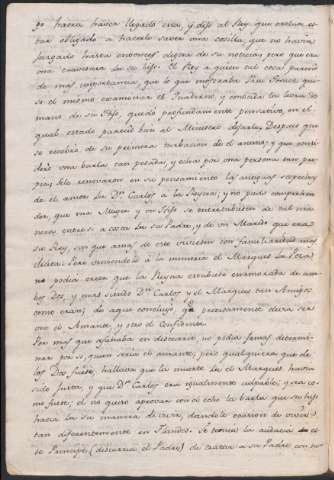 havia llegado esto, y dijo al Rey, que
obligado a hacerle saver una cosilla, que no havia
juzgado hasta entonces digna de su noticia; pero que era
una de su hijo. El Rey a quien tal cosa pareció
de mas importancia, que lo que mostraba Ruy Gomez qui-
so el mismo examinar el Quaderno, y conocida la letra de
mano de su Hijo, quedó profundamente pensativo, en el
qual estado pareció bien al Ministro dejarle. Despues que
se recobró de su primera turbacion de el animo, y que consi-
deró una burla tan pesada, y echa por una persona
se le renovaron en su pensamiento las antiguas sospechas
de el amor de Dn. Carlos a la Reyna; y no pudo comprehen-
der, que una Muger, y un Hijo se entretubiesen de tal ma-
nera entre si a costa de su Padre, y de un Marido que era
su Rey, con que amas de este viviesen con familiaridad
Pero viniendole a la memoria el Marques de Poza
no podia creer que la Reyna estubiese enamorada de am-
bos Dos, y mas siendo Dn. Carlos y el Marques tan Amigos
como eran; de aqui concluyó, que precisamente devia ser
uno el Amante, y otro el Confidente.
Por mas que afanaba en discurrir, no podia jamas determi-
nar por si, quien seria el amante; pero qualquiera que de
los Dos fuese, hallaba que la muerte de el Marques havia
sido justa, y que Dn. Carlos era igualmente culpable; y sea co-
mo fuese, el no quiso aprovar con el echo la burla que su hijo
hacia de su manera de vivir, dandole ocasion de vivir
tan diferentemente en Flandes. Se temia la audacia de este
Principe (discurria el Padre) de tratar a su Padre con tan